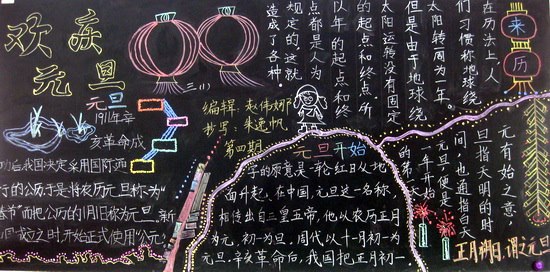 欢庆
元旦
元旦
1911年辛
亥革命成
功后我国决定采用国际通
行的公历于是将农历元旦称为"
春节"而把公历的1月1日称为元旦。新
成立之时,开始正式使用公元
三(1)
编辑:赵伟娜
抄写:朱逸帆
第四期
来历
在历法上,人
们习惯称地球绕
太阳转一周为一年。
但是由于地球绕
太阳运转没有固定
的起点和终点,所
以年的起点和终
点都是人为
规定的,这就
造成了各种。
元旦开始
字的原意是一轮红日从地
面升起,在中国,元旦这一名称,
相传出自三皇五帝,他以农历正月
为元,初一为旦,周代以十月初一为
元旦,辛亥革命后,我国把正月初一
元有始之意,
旦指天明的时
间,也通指白天
元旦,便是
一年开始
的第一天
正月朔日,谓之元旦